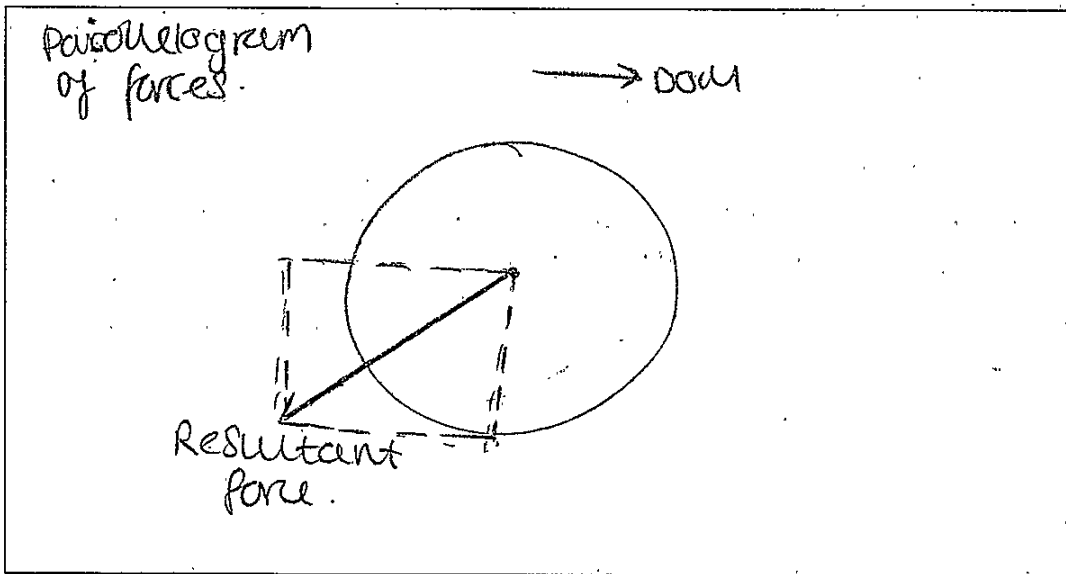 Parallelogram
of forces.
DOM
Resultant
force.